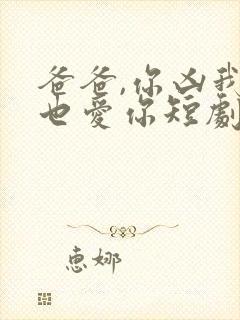 爸爸,你凶我
也愛你短劇
惠娜